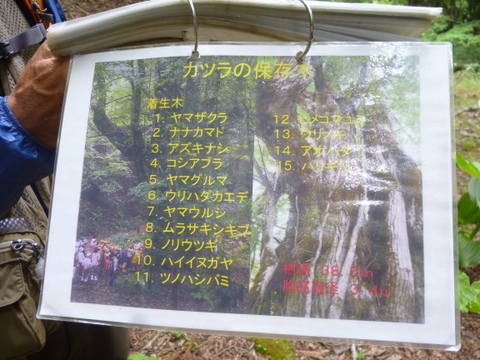 カツラの保存木
着生木
1. ヤマザクラ
2. ナナカマド
3. アズキナシ
4. コシアブラ
5. ヤマグルマ
6. ウリハダカエデ
7. ヤマウルシ
8. ムラサキシキブ
9. ノリウツギ
10. ハイイヌガヤ
11. ツノハシバミ
12.
13.
14.
15.